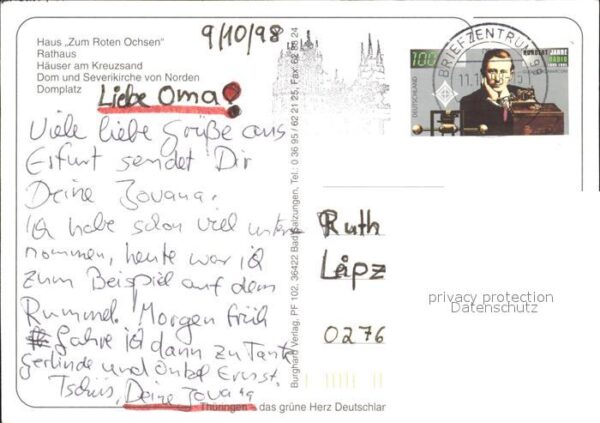 9/10/98
Haus „Zum Roten Ochsen"
Rathaus
Häuser am Kreuzsand
Dom und Severikirche von Norden
Domplatz
Liebe Oma!
Viele liebe Grüße aus
Erfurt sendet Dir
Deine Jovana.
Ich habe schon viel unter
nommen, heute war ich
zum Beispiel auf dem
Rummel. Morgen früh
fahre ich dann zu Tante
Gerlinde und Onkel Ernst.
Tschüs, Deine Jovana
Thüringen - das grüne Herz Deutschlar
Burghard Verlag, PF 102, 36422 Bad Salzungen, Tel.: 0 36 95 / 62 21 25, Fax 62 86 24
BRIEFZENTRUM 99
100
DEUTSCHLAND
HUNDERT JAHRE
RADIO
1895-1995
Ruth
Leipz
0276
privacy protection
Datenschutz